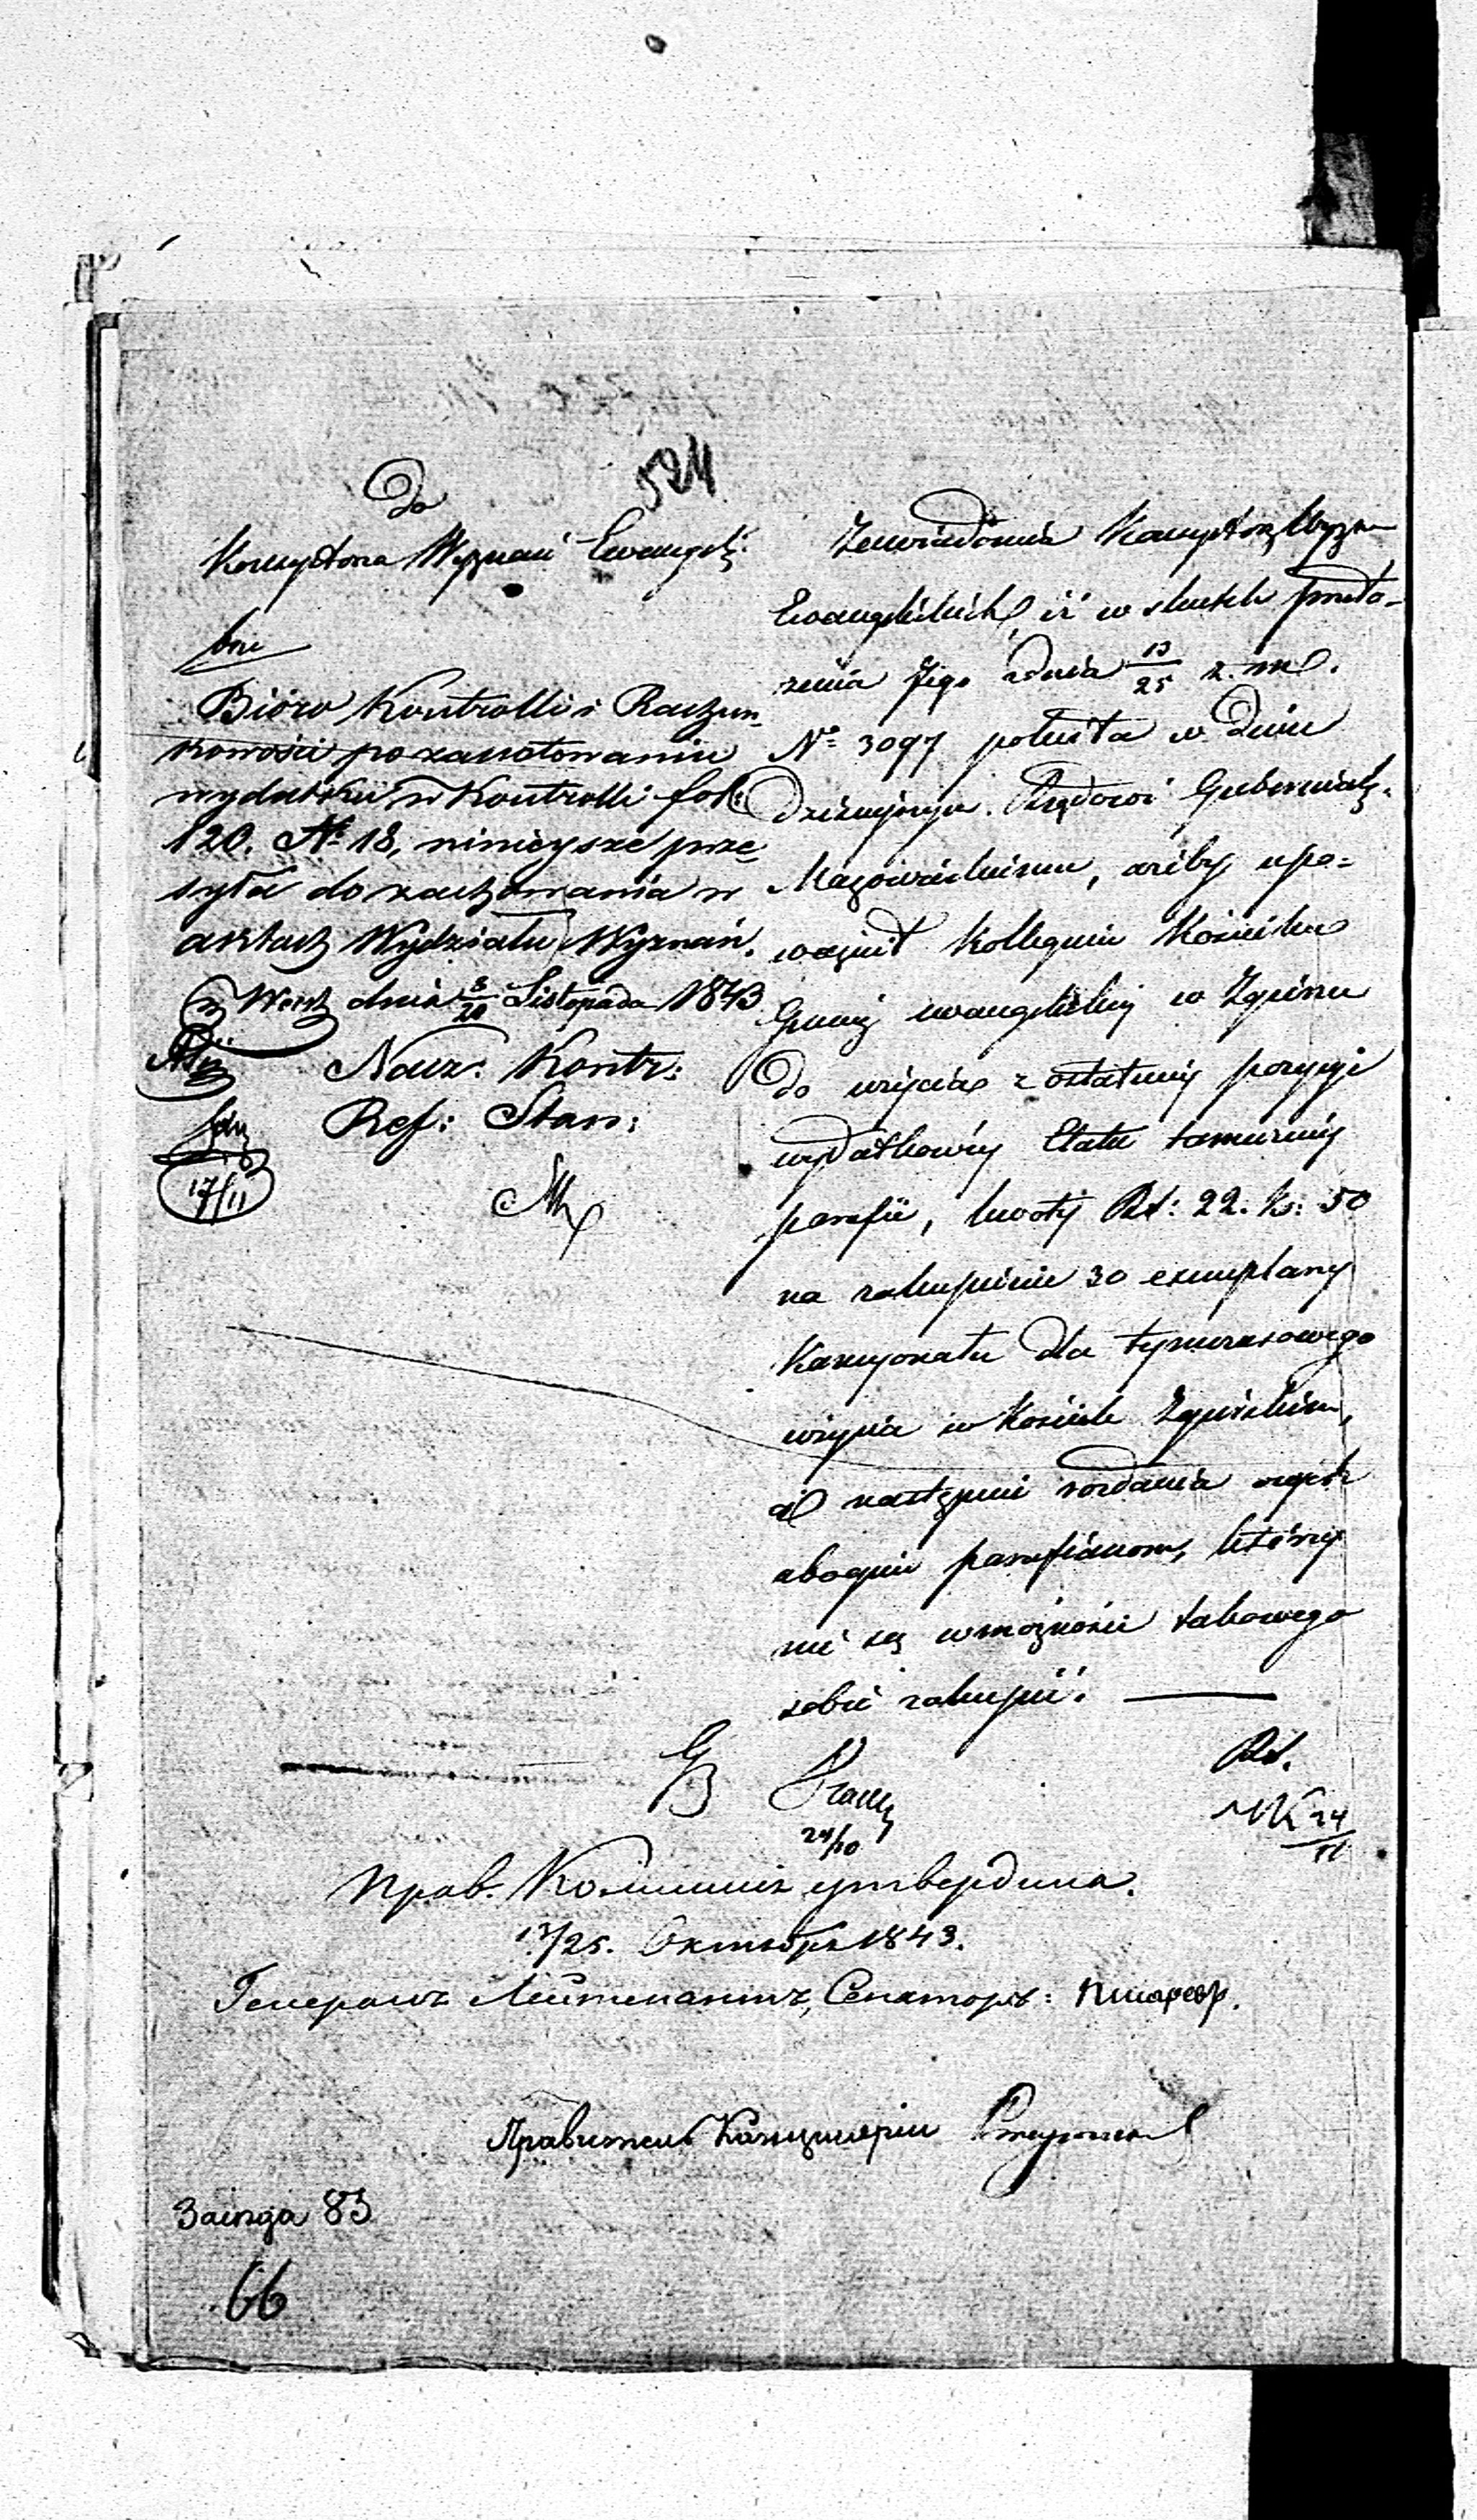 524
Do
Konsystorza Wyznań Ewangel:
Bióro Kontrolli i Rachun-
kowości po zanotowaniu
wydatku w Kontrolli fol:
120. N. 18, niniéysze prze-
syła do zachowania w
aktach Wydziału Wyznań.
w Warsz dnia 8/20 Listopada 1843
Nacz: Kontr:
Ref: Stan:
17/11
Zawiadomia Konsystorz Wyzn
Ewangelickich, iż w skutek przeło-
żenia Jego z dnia 13/25 z. m.
No 3097 poleciła w Dniu
Dzisiejszym Rządowi Gubernial:
Mazowieckiemu, ażeby upo-
ważnił Kollegium Kościelne
Gminy ewangelickiej w Zgierzu
do użycia z ostatniej pozycyi
wydatkowéj Etatu tamecznéj
parafii, kwoty Rs: 22. k: 50
na zakupienie 30 exemplarzy
Kancyonału dla tymczasowego
użycia w Kościele Zgierskim,
a następnie rozdania onych
ubogim parafianom, którzy
nie są w możności takowego
sobie zakupić.
24/10
Rs.
24/11
Прав. Коммисія утвердила.
13/25. Октября 1843.
Генералъ Лейтенантъ, Сенаторъ: Писаревъ.
Правитель Канцеляріи
83
66